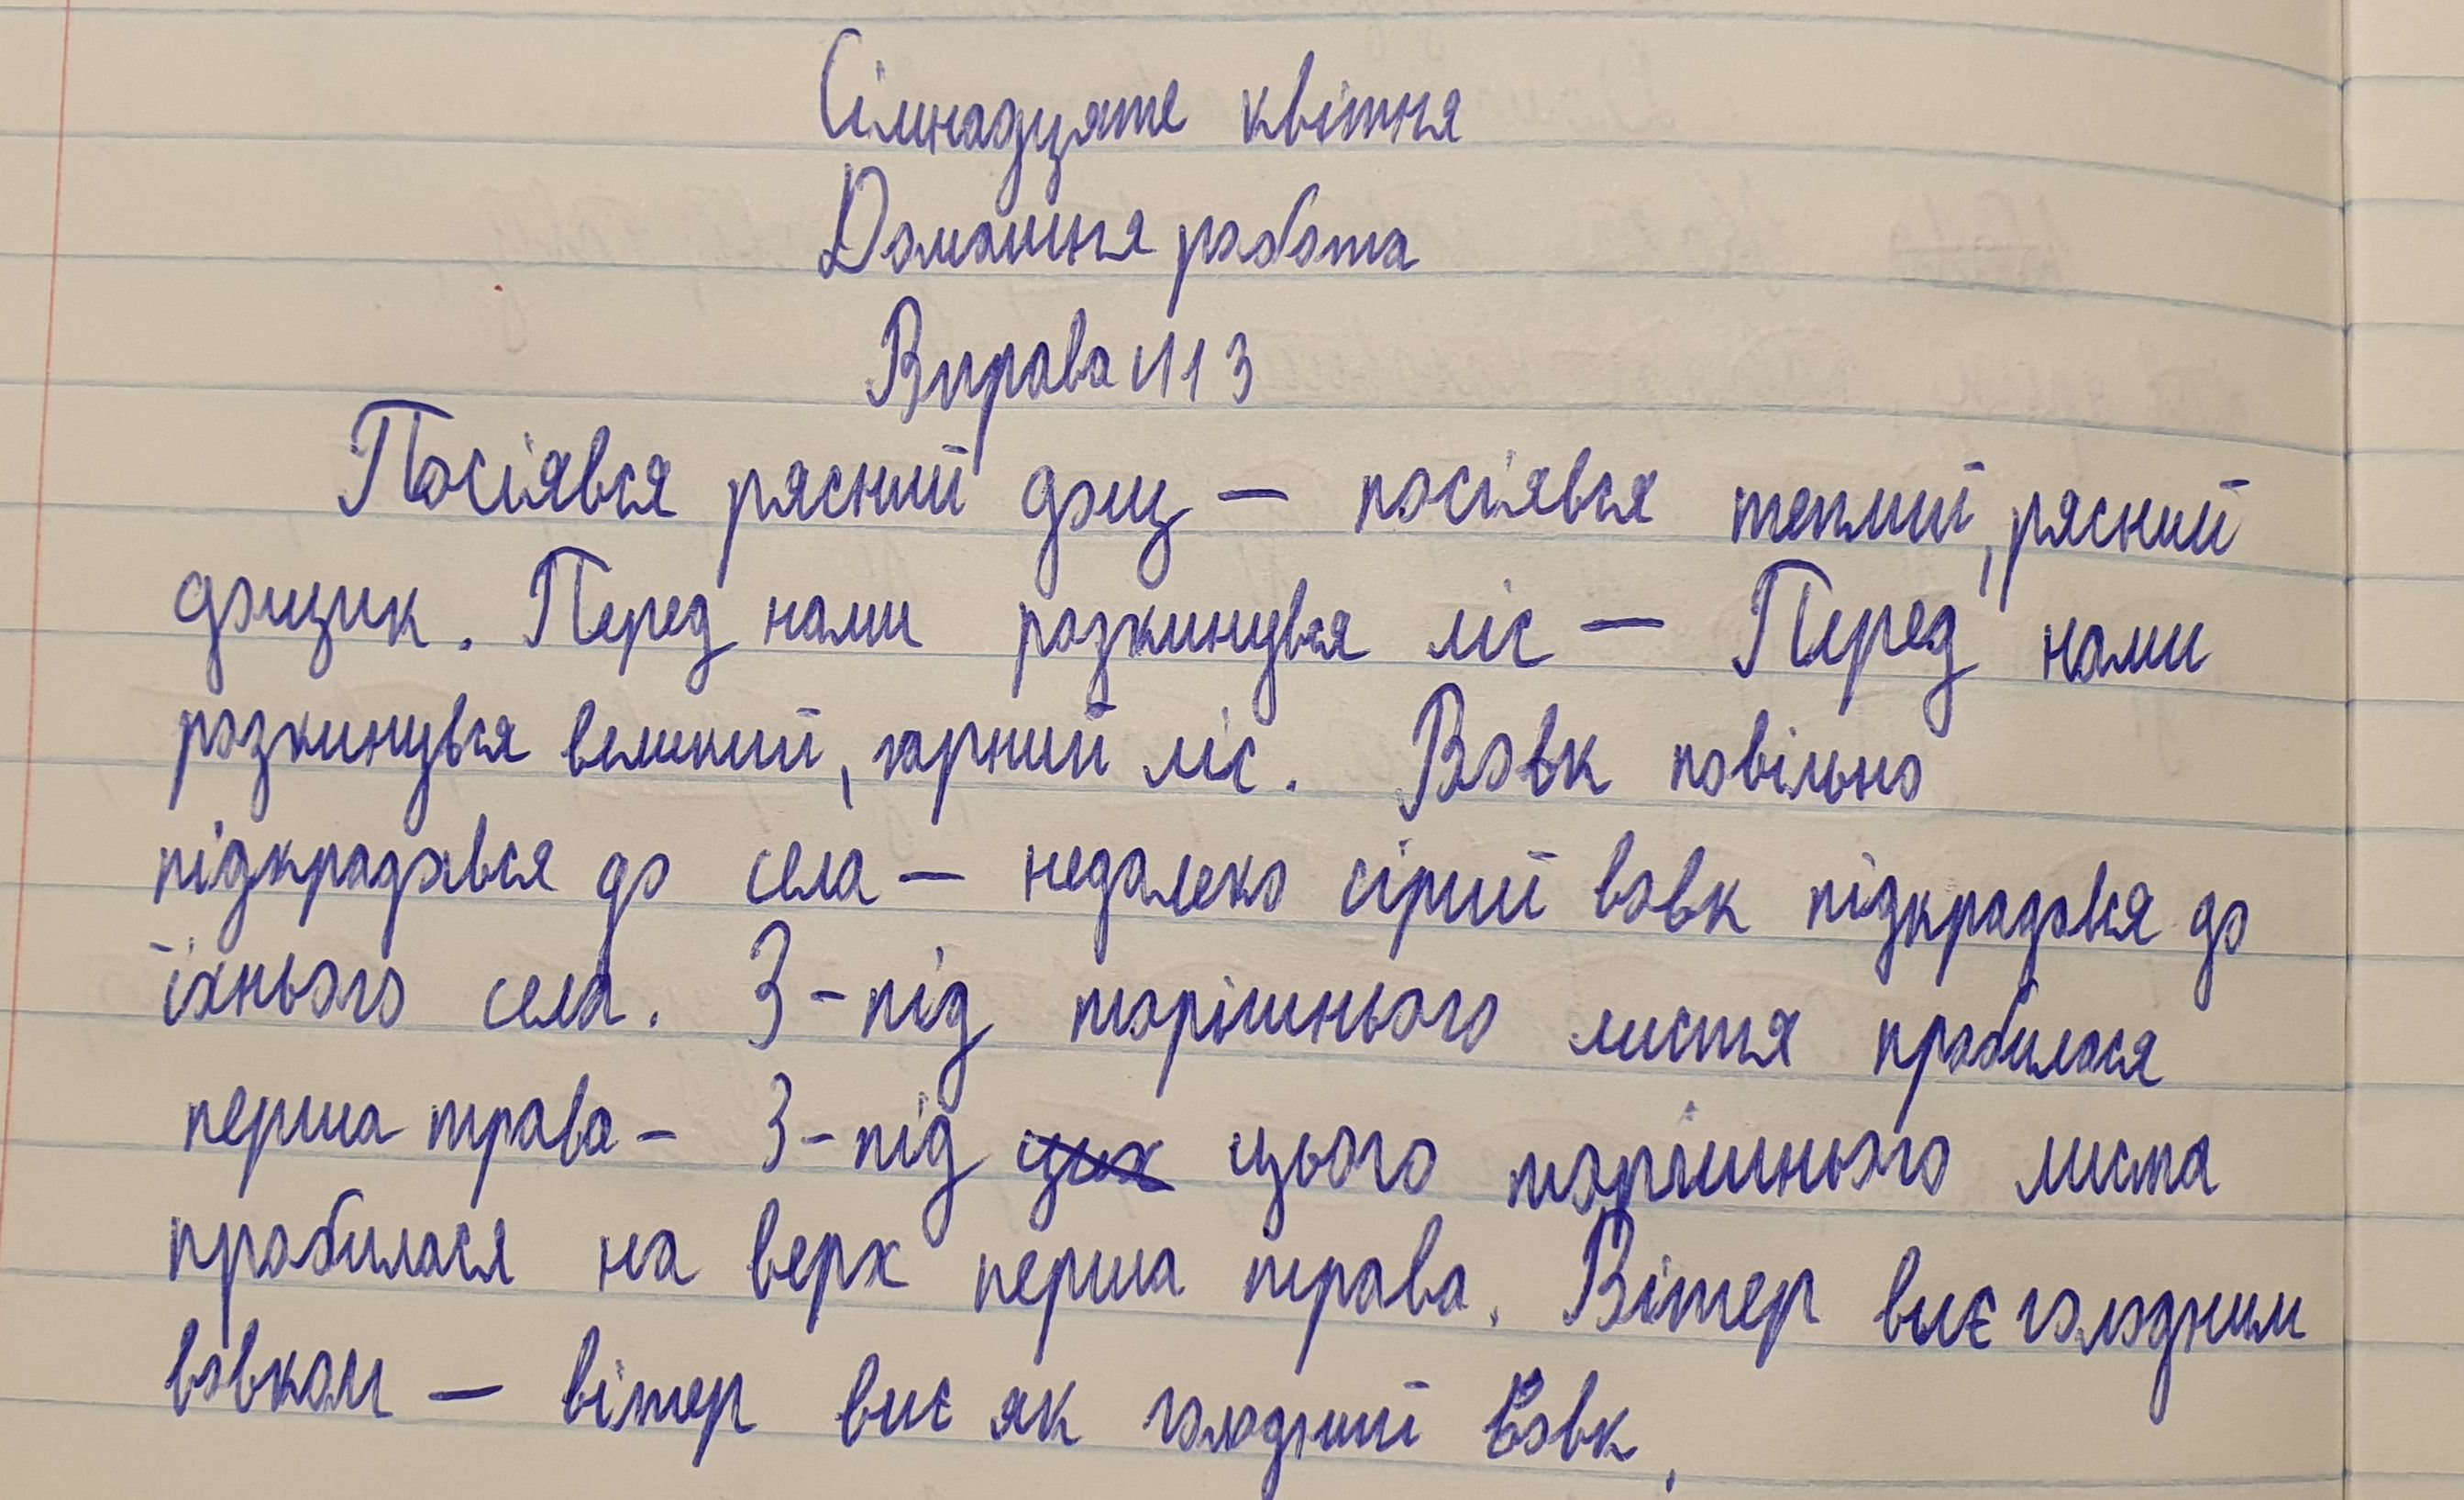 Сімнадцяте квітня
Домашня робота
Вправа №13
Посіявся рясний дощ — посіявся теплий, рясний
дощик. Перед нами розкинувся ліс — Перед нами
розкинувся великий, гарний ліс. Вовк повільно
підкрадався до села — недалеко сірий вовк підкрадався до
їхнього села. З-під торішнього листя пробилася
перша трава - З-під цього торішнього листа
пробилася на верх перша трава. Вітер виє голодним
вовком — вітер виє як голодний вовк.